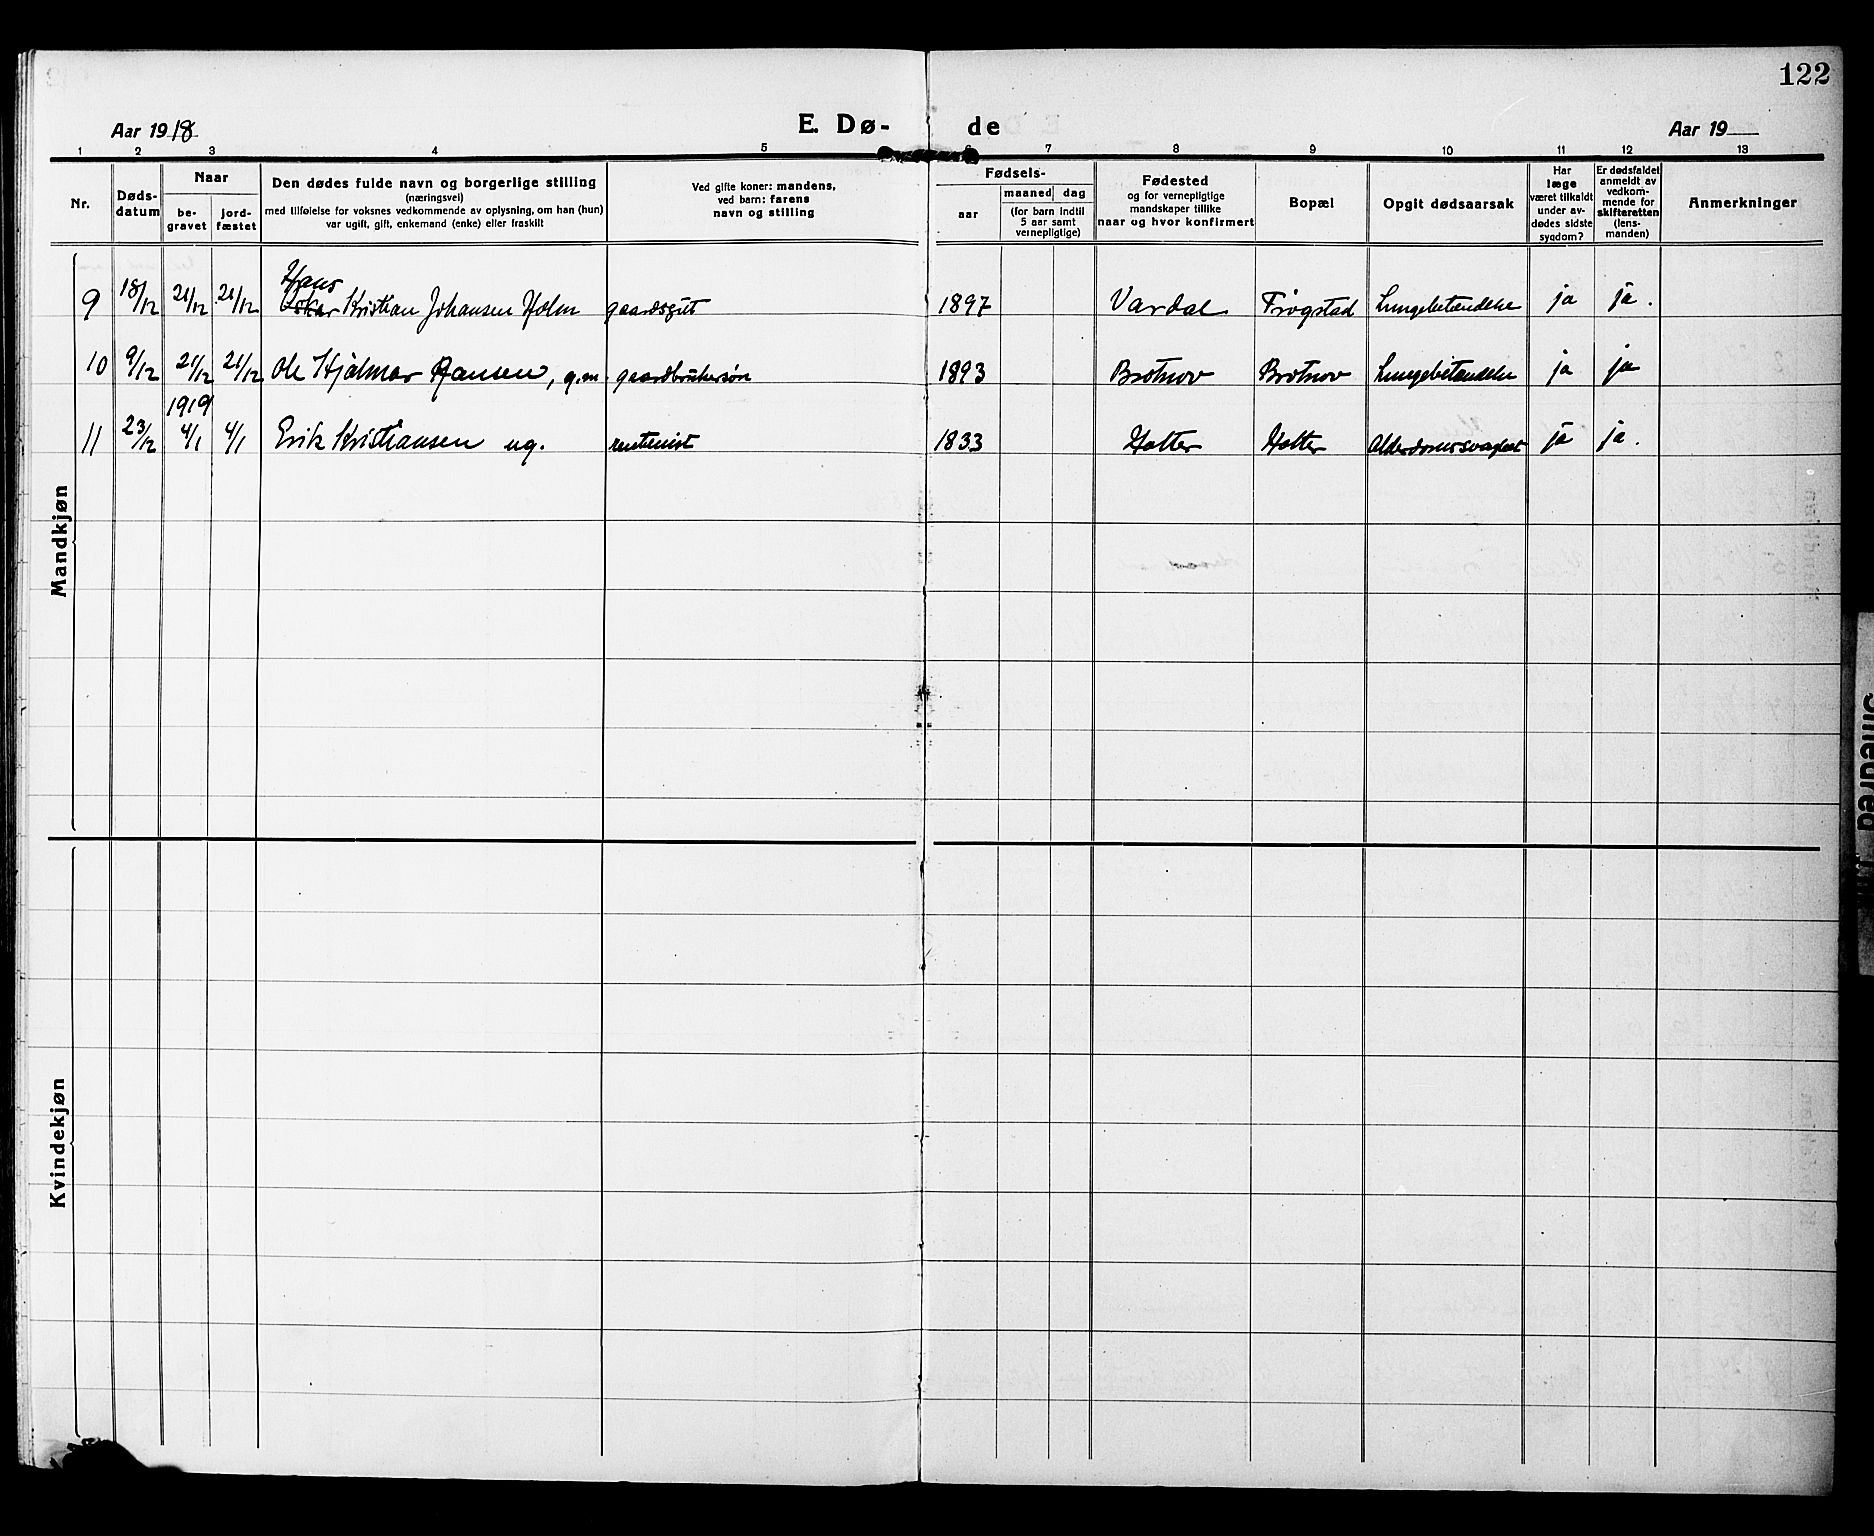 122
Aar 1918
E. Dø-
de
Aar 19
1 2 3 4 5 6 7 8 9 10 11 12 13
Nr.
Døds-
datum
Naar
be-
gravet
jord-
fæstet
Den dødes fulde navn og borgerlige stilling
(næringsvei)
med tilføielse for voksnes vedkommende av oplysning, om han (hun)
var ugift, gift, enkemand (enke) eller fraskilt
Ved gifte koner: mandens,
ved barn: farens
navn og stilling
Fødsels-
aar
maaned dag
(for barn indtil
5 aar samt
vernepligtige)
Fødested
og for vernepligtige
mandskaper tillike
naar og hvor konfirmert
Bopæl
Opgit dødsaarsak
Har
læge
været tilkaldt
under av-
dødes sidste
sygdom?
Er dødsfaldet
anmeldt av
vedkom-
mende for
skifteretten
(lens-
manden)
Anmerkninger
Mandkjøn
Hans
9 18/12 21/12 21/12 Oskar Kristian Johansen Holm gaardsgut 1897 Vardal Frogstad Lungebetændelse ja ja.
10 9/12 21/12 21/12 Ole Hjalmar Hansen, g.m. gaardbrukersøn 1893 Brotnov Brotnov Lungebetændelse ja ja
1919
11 23/12 4/1 4/1 Erik Kristiansen ug. 1833 Hotter Hotter Alderdomssvaghet ja ja.
Kvindekjøn